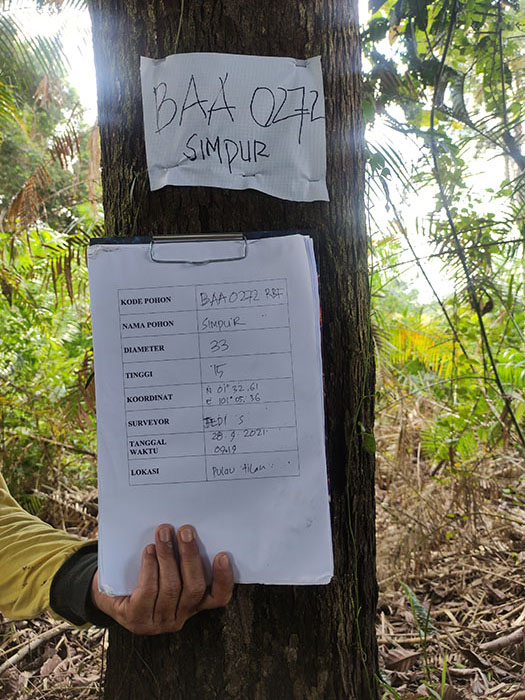 BAA 0272
SIMPUR
KODE POHON BAA 0272 RBF
NAMA POHON SIMPUR
DIAMETER 33
TINGGI 15
KOORDINAT N 01° 32. 61
E 101° 05. 36
SURVEYOR EDI S
TANGGAL 28 9 2021
WAKTU 09.19
LOKASI Pulau tilan